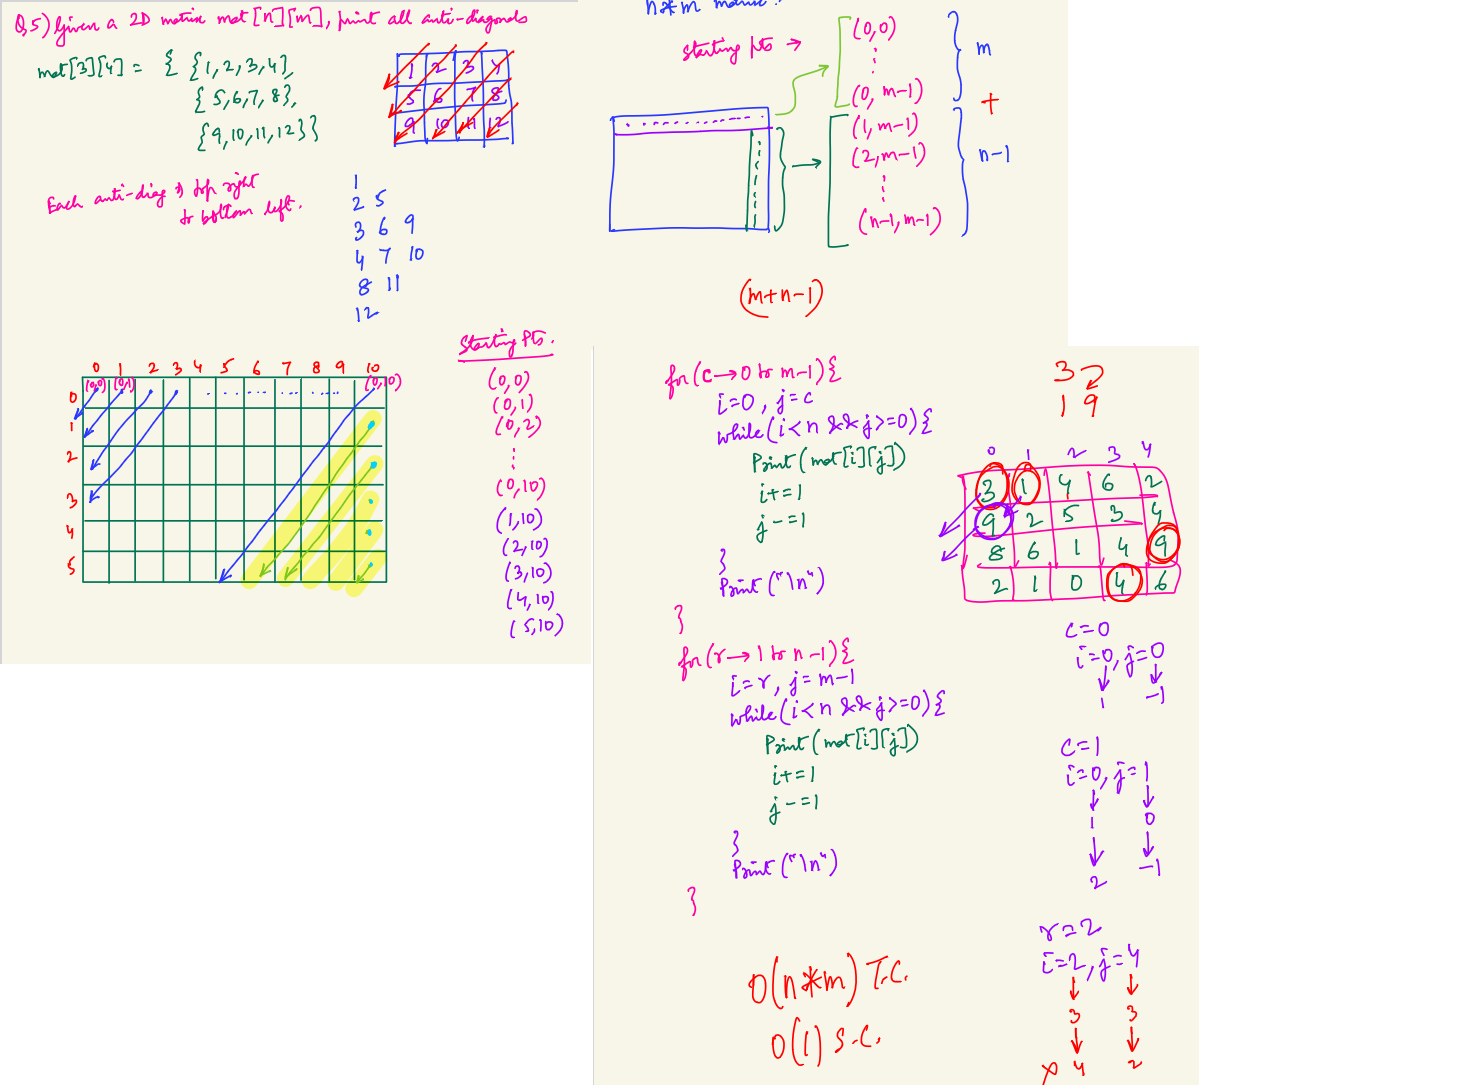 Q.5) Given a 2D matrix mat[n][m], print all anti-diagonals
mat[3][4] = { {1,2,3,4},
{5,6,7,8},
{9,10,11,12}}
1 2 3 4
5 6 7 8
9 10 11 12
Each anti-diag → top right
to bottom left.
1
2 5
3 6 9
4 7 10
8 11
12
Starting Pts.
(0,0)
(0,1)
(0,2)
(0,10)
(1,10)
(2,10)
(3,10)
(4,10)
(5,10)
0 1 2 3 4 5 6 7 8 9 10
(0,0) (0,1) (0,10)
0
1
2
3
4
5
n*m matrix.
Starting pts →
(0,0)
(0, m-1)
(1, m-1)
(2, m-1)
(n-1, m-1)
m
+
n-1
(m+n-1)
for (c→0 to m-1){
i=0, j=c
while(i<n && j>=0){
Print(mat[i][j])
i+=1
j-=1
}
Print("\n")
}
for (r→1 to n-1){
i=r, j=m-1
while(i<n && j>=0){
Print(mat[i][j])
i+=1
j-=1
}
Print("\n")
}
O(n*m) T.C.
O(1) S.C.
3
1 9
0 1 2 3 4
3 1 4 6 2
9 2 5 3 4
8 6 1 4 9
2 1 0 4 6
c=0
i=0, j=0
1 -1
c=1
i=0, j=1
1 0
2 -1
r=2
i=2, j=4
3 3
x 4 2